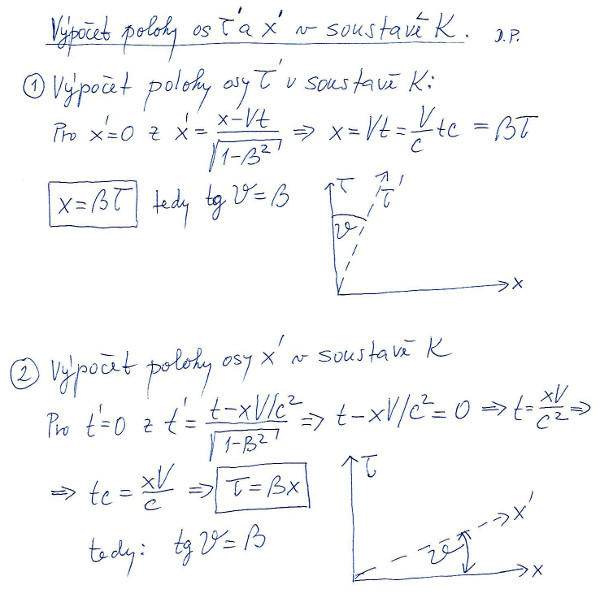 Výpočet polohy os τ' a x' v soustavě K. D.P.
① Výpočet polohy osy τ' v soustavě K:
Pro x'=0 z x' = (x-Vt)/√(1-β²) ⇒ x = Vt = V/c tc = βτ
x = βτ tedy tg ϑ = β
τ τ'
ϑ
x
② Výpočet polohy osy x' v soustavě K
Pro t'=0 z t' = (t-xV/c²)/√(1-β²) ⇒ t-xV/c² = 0 ⇒ t = xV/c² ⇒
⇒ tc = xV/c ⇒ τ = βx
tedy: tg ϑ = β
τ
x'
ϑ
x